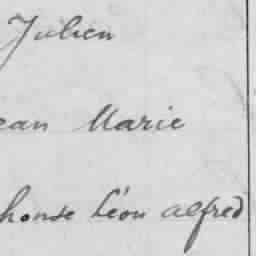 Julien
ean Marie
honse Léon alfred